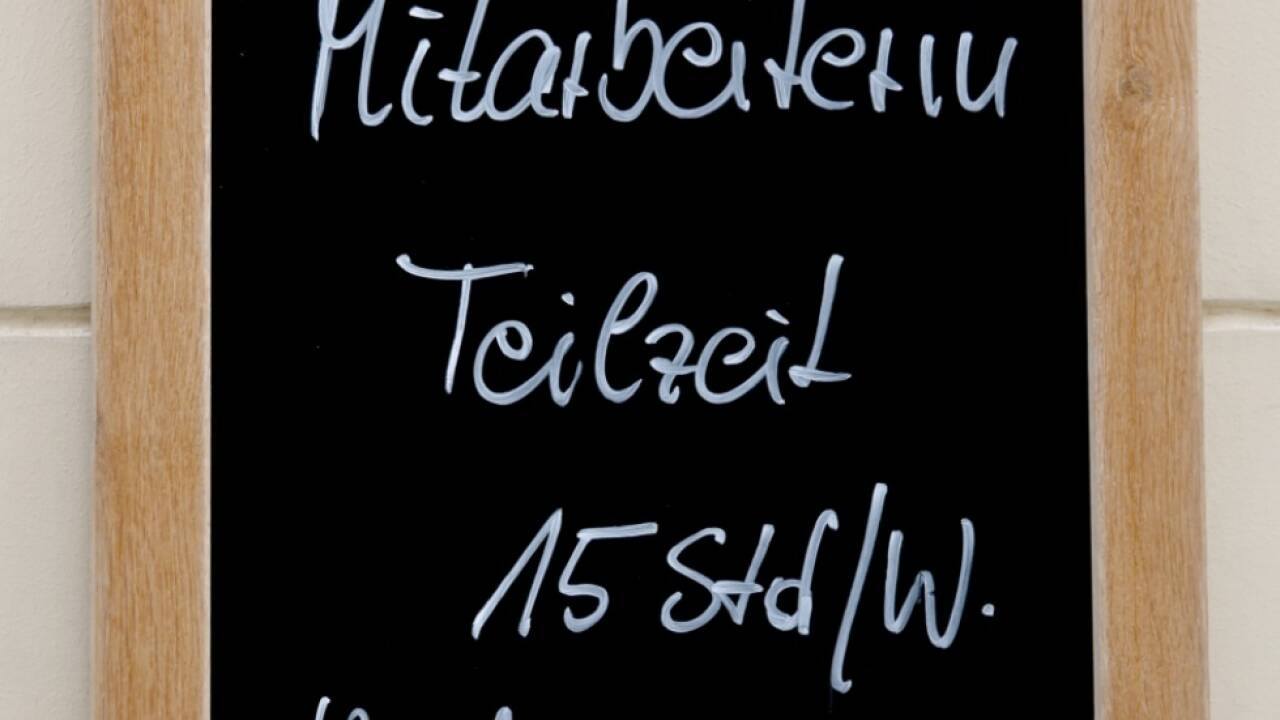 Mitarbeiterin
Teilzeit
15 Std/W.